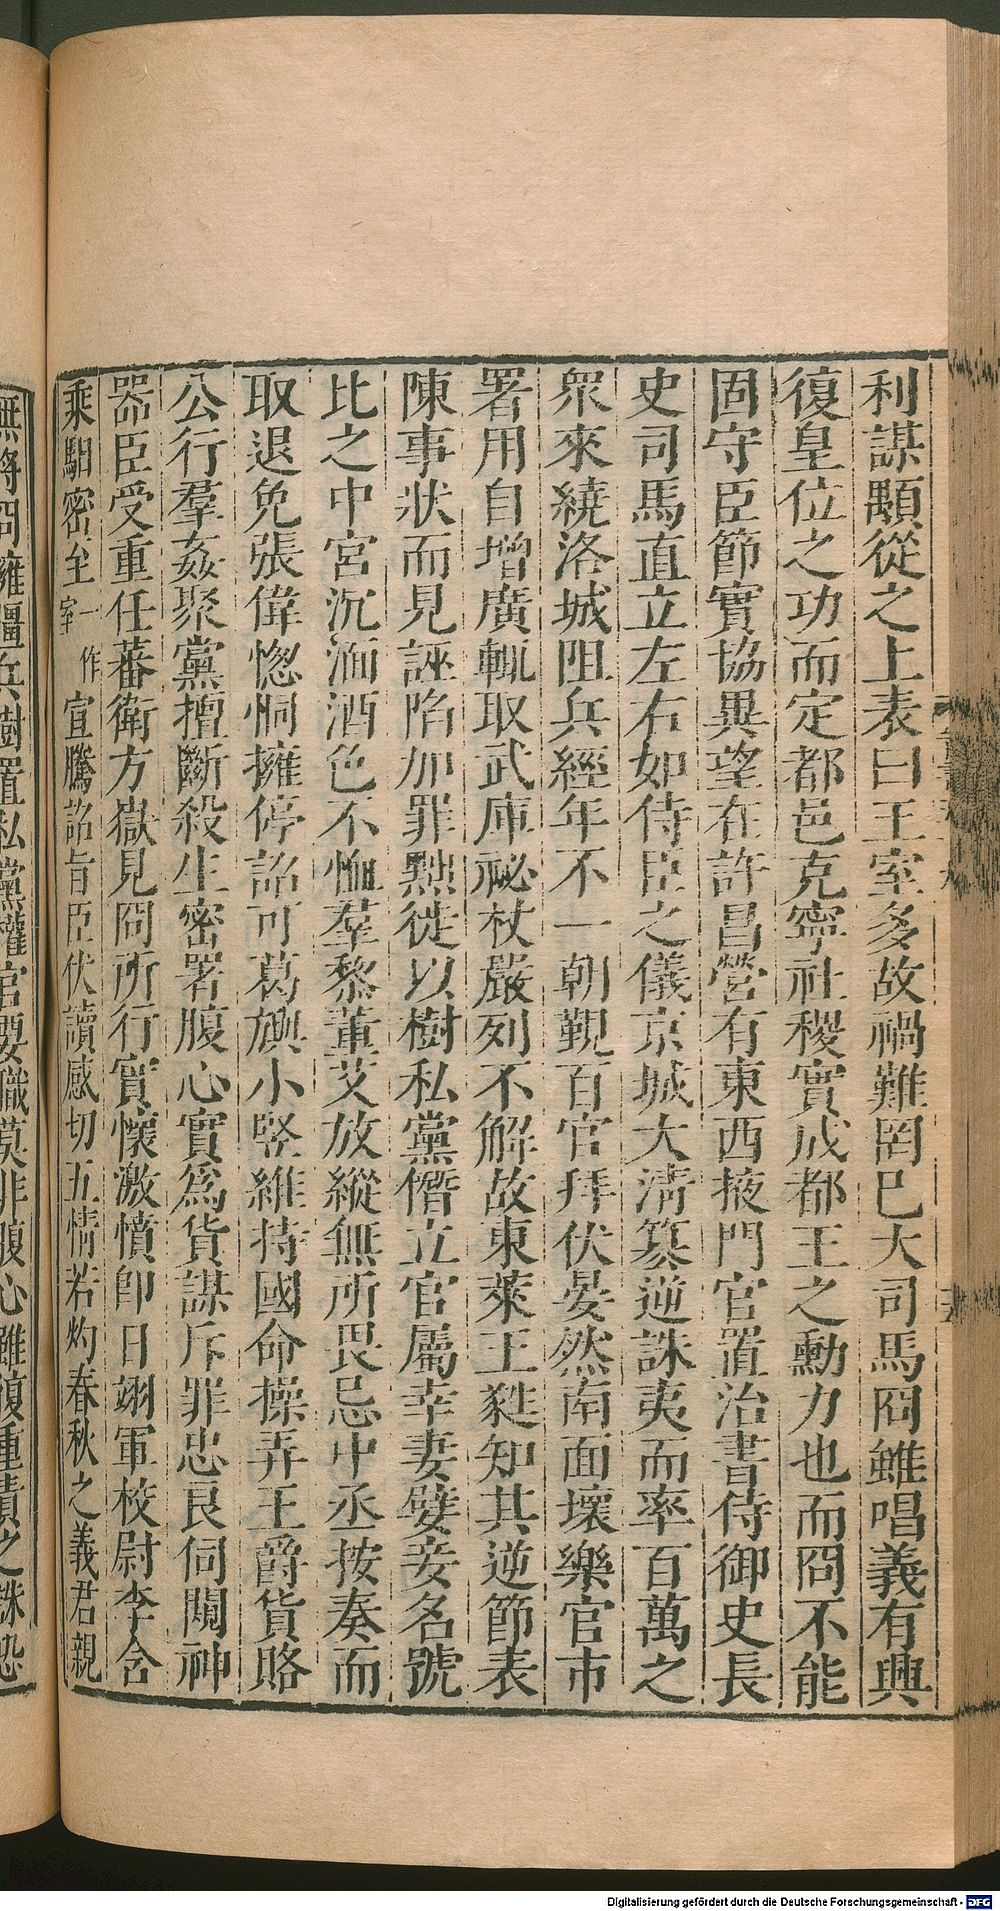 利謀顒從之上表曰王室多故禍難罔已大司馬冏雖唱義有興
復皇位之功而定都邑克寧社稷實成都王之勳力也而冏不能
固守臣節實協異望在許昌營有東西掖門官置治書侍御史長
史司馬直立左右如侍臣之儀京城大清簒逆誅夷而率百萬之
眾來繞洛城阻兵經年不一朝覲百官拜伏晏然南面壞樂官市
署用自增廣輒取武庫祕杖嚴列不解故東萊王蕤知其逆節表
陳事狀而見誣陷加罪黜徙以樹私黨僭立官屬幸妻嬖妾名號
比之中宮沉湎酒色不恤羣黎董艾放縱無所畏忌中丞按奏而
取退免張偉惚恫擁停詔可葛旟小竪維持國命操弄王爵貨賂
公行羣姦聚黨擅斷殺生密署腹心實為貨謀斥罪忠良伺闚神
器臣受重任蕃衛方嶽見冏所行實懷激憤即日翊軍校尉李含
乘馹密至一作室宣騰詔旨臣伏讀感切五情若灼春秋之義君親
無將冏擁彊兵樹置私黨權官要職莫非腹心雖復重責之誅恐
Digitalisierung gefördert durch die Deutsche Forschungsgemeinschaft - DFG